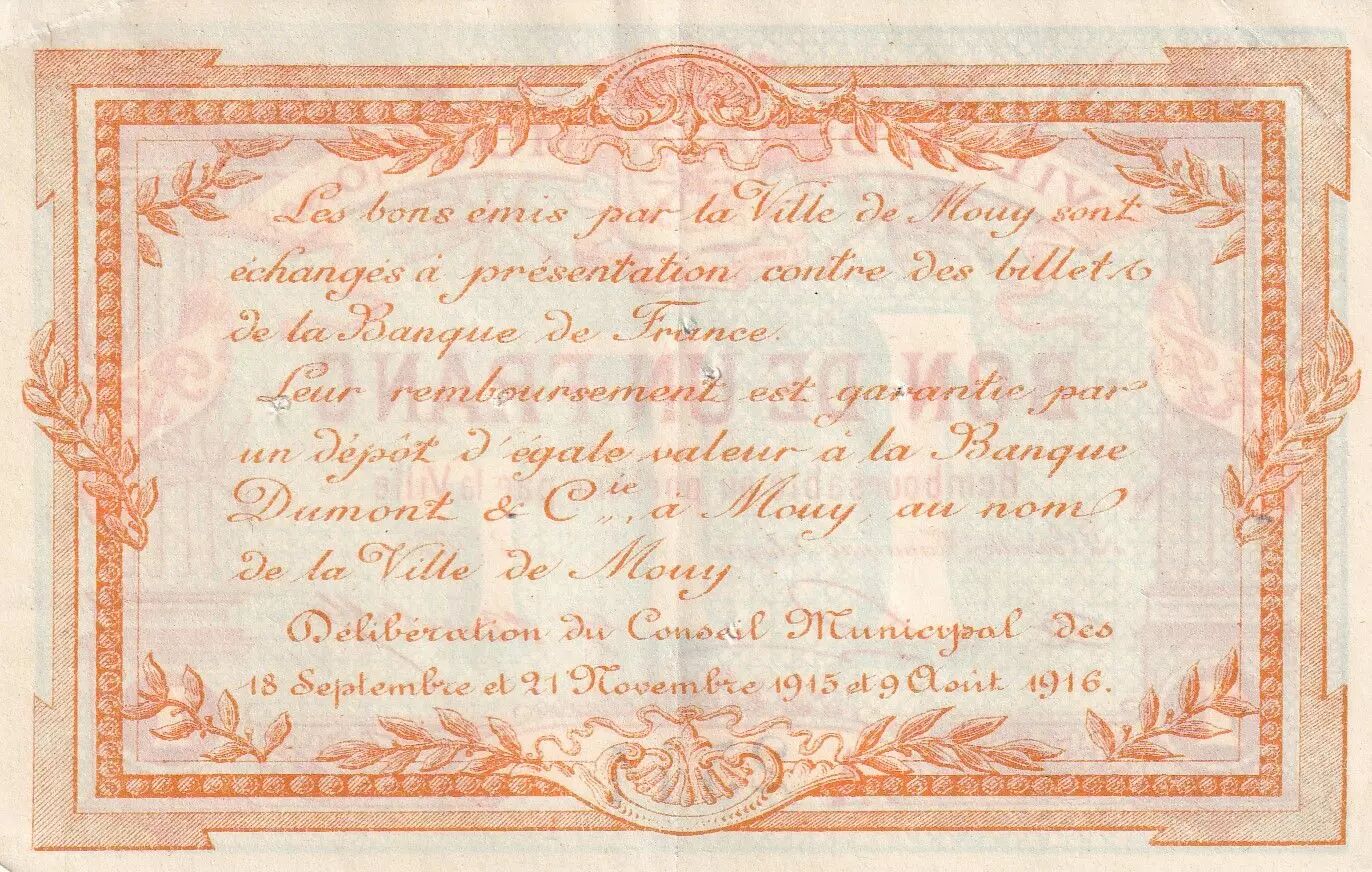 Les bons émis par la Ville de Mouy, sont
échangés à présentation contre des billets
de la Banque de France.
Leur remboursement est garantie par
un dépôt d'égale valeur à la Banque
Dumont & Cie à Mouy, au nom
de la Ville de Mouy
Délibération du Conseil Municipal des
18 Septembre et 21 Novembre 1915 et 9 Août 1916.
BON DE UN FRANC
Remboursable par la Ville